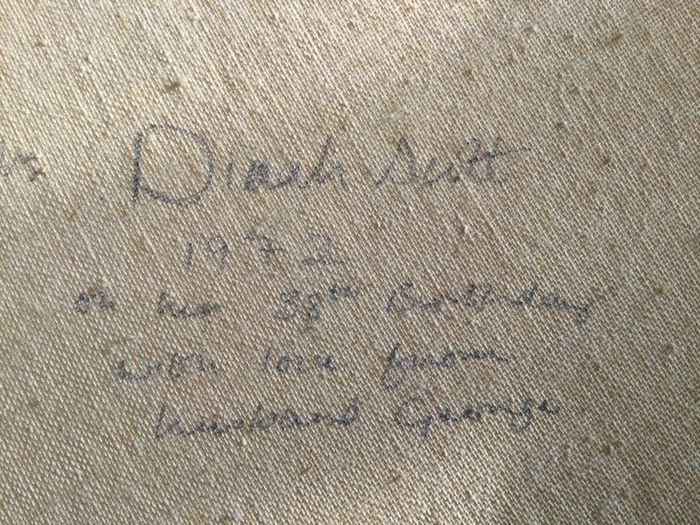 Dinah Scott
1972
on her 38th Birthday
with love from
husband George